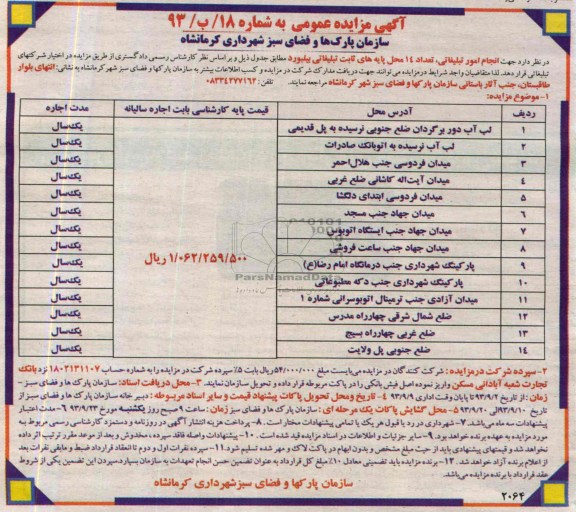 آگهی مزایده عمومی به شماره ۱۸/ب/۹۳
سازمان پارک‌ها و فضای سبز شهرداری کرمانشاه
در نظر دارد جهت انجام امور تبلیغاتی، تعداد ۱۴ محل پایه های ثابت تبلیغاتی بیلبورد مطابق جدول ذیل و براساس نظر کارشناس رسمی دادگستری از طریق مزایده در اختیار شرکتهای
تبلیغاتی قرار دهد. لذا متقاضیان واجد شرایط در مزایده می توانند جهت دریافت مدارک شرکت در مزایده و کسب اطلاعات بیشتر به سازمان پارکها و فضای سبز شهر کرمانشاه به نشانی: انتهای بلوار
طاقبستان، جنب آثار باستانی سازمان پارکها و فضای سبز شهر کرمانشاه مراجعه نمایند. تلفن: ۰۸۳۳۴۲۷۷۱۶۲
۱-موضوع مزایده:
ردیف آدرس محل قیمت پایه کارشناسی بابت اجاره سالیانه مدت اجاره
۱ لب آب دور برگردان ضلع جنوبی نرسیده به پل قدیمی یک‌سال
۲ لب آب نرسیده به اتوبانک صادرات یک‌سال
۳ میدان فردوسی جنب هلال‌احمر یک‌سال
۴ میدان آیت‌اله کاشانی ضلع غربی یک‌سال
۵ میدان فردوسی ابتدای دلگشا یک‌سال
۶ میدان جهاد جنب مسجد یک‌سال
۷ میدان جهاد جنب ایستگاه اتوبوس یک‌سال
۸ میدان جهاد جنب ساعت فروشی یک‌سال
۹ پارکینگ شهرداری جنب درمانگاه امام رضا(ع) ۱/۰۶۲/۲۵۹/۵۰۰ ریال یک‌سال
۱۰ پارکینگ شهرداری جنب دکه مطبوعاتی یک‌سال
۱۱ میدان آزادی جنب ترمینال اتوبوسرانی شماره ۱ یک‌سال
۱۲ ضلع شمال شرقی چهارراه مدرس یک‌سال
۱۳ ضلع غربی چهارراه بسیج یک‌سال
۱۴ ضلع جنوبی پل ولایت یک‌سال
ParsNamadData
۲- سپرده شرکت در مزایده: شرکت کنندگان در مزایده می‌بایست مبلغ ۵۴/۰۰۰/۰۰۰ ریال بابت ۵٪ سپرده شرکت در مزایده را به شماره حساب ۱۸۰۲۱۳۱۱۰۷ نزد بانک
تجارت شعبه آبادانی مسکن واریز نموده اصل فیش بانکی را در پاکت مربوطه قرار داده و تحویل سازمان نمایند. ۳-محل دریافت اسناد: سازمان پارک ها و فضای سبز-
زمان: از تاریخ ۹۳/۹/۲ تا پایان وقت اداری ۹۳/۹/۹ ۴- تاریخ ومحل تحویل پاکات پیشنهاد قیمت و سایر اسناد مربوطه: دبیرخانه سازمان پارک ها و فضای سبز از
تاریخ ۹۳/۹/۱۰ الی ۹۳/۹/۲۰ ۵- محل گشایش پاکات یک مرحله ای: سازمان پارک ها و فضای سبز زمان: ساعت ۹ صبح روز یکشنبه مورخ ۹۳/۹/۲۳ ۶- مدت اعتبار
پیشنهادات سه ماه می‌باشد. ۷- شهرداری در رد یا قبول هر یک یا تمامی پیشنهادات مختار است. ۸- پرداخت هزینه انتشار آگهی در روزنامه و دستمزد کارشناس رسمی مربوط به
مورد مزایده به عهده برنده خواهد بود. ۹- سایر جزئیات و اطلاعات در اسناد مزایده قید شده است. ۱۰- پیشنهادات واصله فاقد سپرده، مخدوش و بعد از موعد مقرر ترتیب اثر داده
نخواهد شد و قیمتهای پیشنهادی باید از حیث مبلغ مشخص و بدون ابهام در پاکت لاک و مهر شده تسلیم شود. ۱۱- سپرده نفرات اول و دوم تا انعقاد قرارداد ضبط و مابقی نفرات بعد
از اعلام برنده آزاد خواهد شد. ۱۲- برنده مزایده باید تضمینی معادل ۱۰٪ مبلغ کل قرارداد به عنوان تضمین حسن انجام تعهدات به سازمان بسپارد. سپردن این تضمین یکی از شروط
عقد قرارداد با برنده مزایده می‌باشد.
سازمان پارکها و فضای سبز شهرداری کرمانشاه
۲۰۶۴